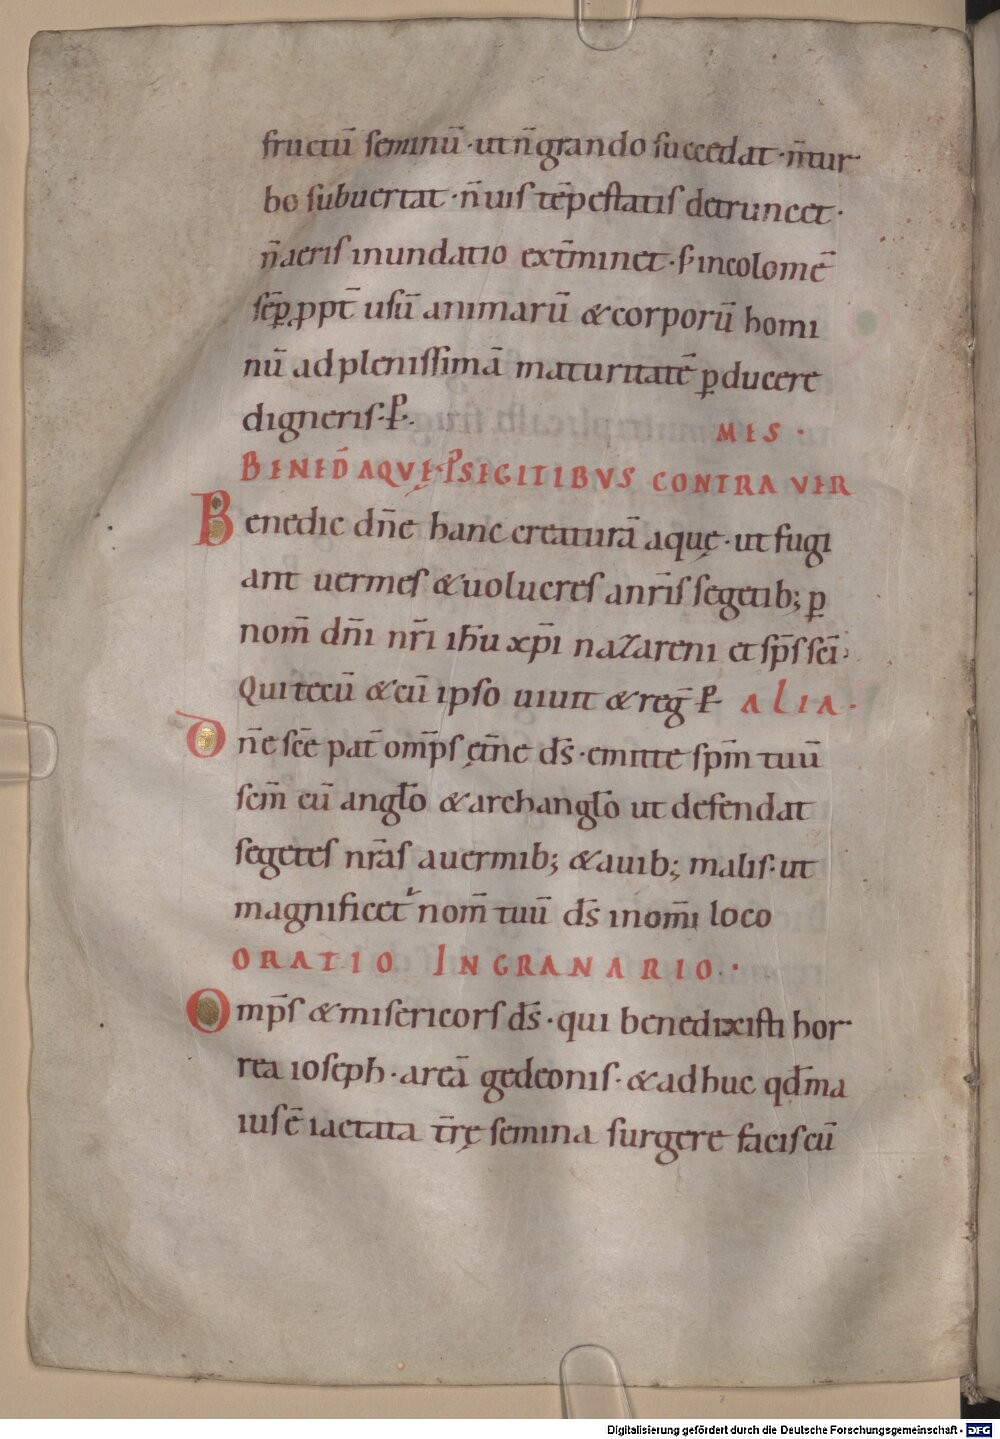 fructū seminū · ut n̄ grando succedat · n̄ tur
bo subuertat · n̄ uis tēpestatis detruncet ·
n̄ aeris inundatio ext̄minet · s; incolomē
sēp ꝓpt̄ usū animarū & corporū homi
nū ad plenissimā maturitatē ꝑducere
digneris · P̱ ·
MIS ·
BENED̄ AQVĘ · P SEGITIBVS CONTRA VER
Benedic dn̄e hanc creaturā aquę · ut fugi
ant uermes & uolucres a nr̄is segetib; ꝑ
nom̄ dn̄i nr̄i ih̄u xp̄i nazareni et sp̄s sc̄i ·
Qui tecū & cū ipso uiuit & reḡ P̱ ALIA ·
Dn̄e sc̄e pat̄ om̄ps ęt̄ne ds̄ · emitte spm̄ tuū
scm̄ cū angl̄o & archangl̄o ut defendat
segetes nr̄as a uermib; & auib; malis · ut
magnificet nom̄ tuū ds̄ in om̄i loco
ORATIO IN GRANARIO ·
Omp̄s & misericors ds̄ · qui benedixisti hor
rea ioseph · areā gedeonis · & adhuc qd̄ ma
ius ē iactata t̄rę semina surgere facis cū
Digitalisierung gefördert durch die Deutsche Forschungsgemeinschaft - DFG